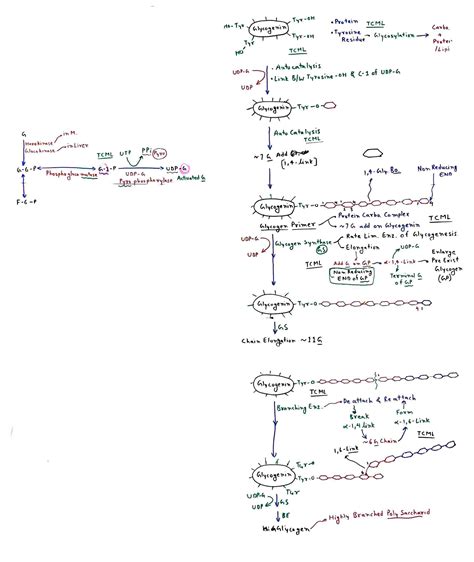 HO-Tyr
Tyr-OH
Glycogenin
Tyr-OH
HO
Tyr
TCML
• Protein TCML
• Tyrosine Residue → Glycosylation → Carbo + Protein/Lipi
UDP-G
UDP
• Autocatalysis
• Link B/w Tyrosine-OH & C-1 of UDP-G
Glycogenin
Tyr-O
Auto Catalysis
TCML
~7G Add
[1,4-link]
G
Hexokinase → in M.
Glucokinase → in Liver
G-6-P
Phosphoglucomutase
TCML
G-1-P
UTP
PPi
UDP-G
Pyrophosphorylase
UDP-G
Activated G
F-6-P
1,4-Gly. Bo.
Non Reducing END
Glycogenin
Tyr-O
Glycogen Primer
• Protein Carbo Complex TCML
• ~7G add on Glycogenin
• Rate Lim. Enz. of Glycogenesis
UDP-G
UDP
Glycogen Synthase
GS
• Elongation
UDP-G
TCML
Add G on GP → α-1,4-Link
Enlarge Pre Exist Glycogen (GP)
Non Reducing END of GP
Terminal G of GP
Glycogenin
Tyr-O
4 1
GS
Chain Elongation ~11G
Glycogenin
Tyr-O
Branching Enz.
Deattach & Reattach
TCML
Break α-1,4 Link
Form α-1,6-Link
~6G Chain
1,6-Link
Glycogenin
Tyr-O
Tyr-O
Tyr
UDP-G
UDP
GS
BE
Glycogen
Highly Branched Poly Saccharid